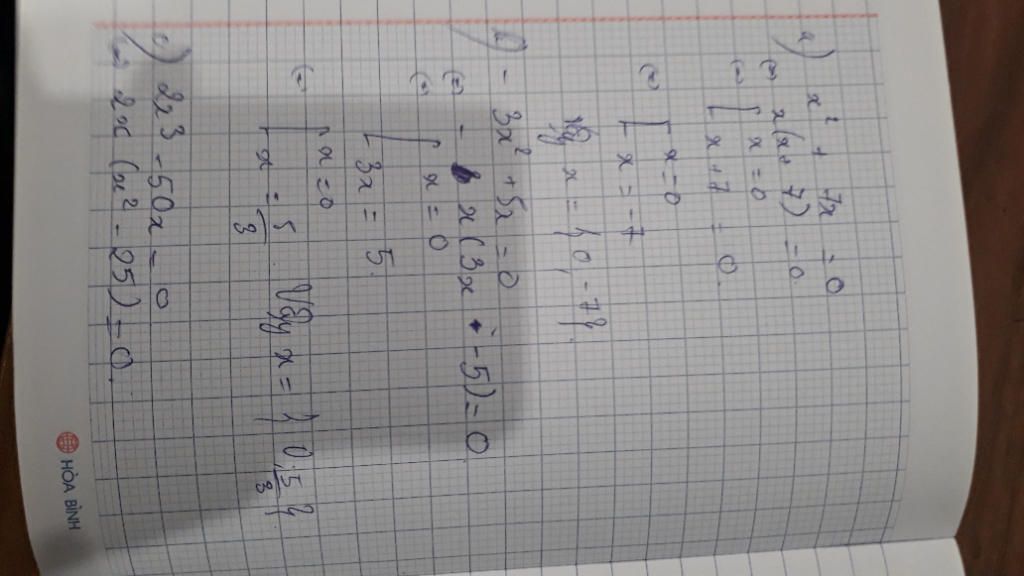 a) x² + 7x = 0
(=) x(x+ 7) = 0
(=) [ x = 0
x + 7 = 0
(=) [ x = 0
x = -7
Vậy x = { 0, -7}
b) - 3x² + 5x = 0
(=) - x(3x - 5) = 0
(=) [ x = 0
- 3x = 5
(=) [ x = 0
x = 5/3 Vậy x = { 0; 5/3 }
c) 2x³ - 50x = 0
(=) 2x (x² - 25) = 0.
HÒA BÌNH